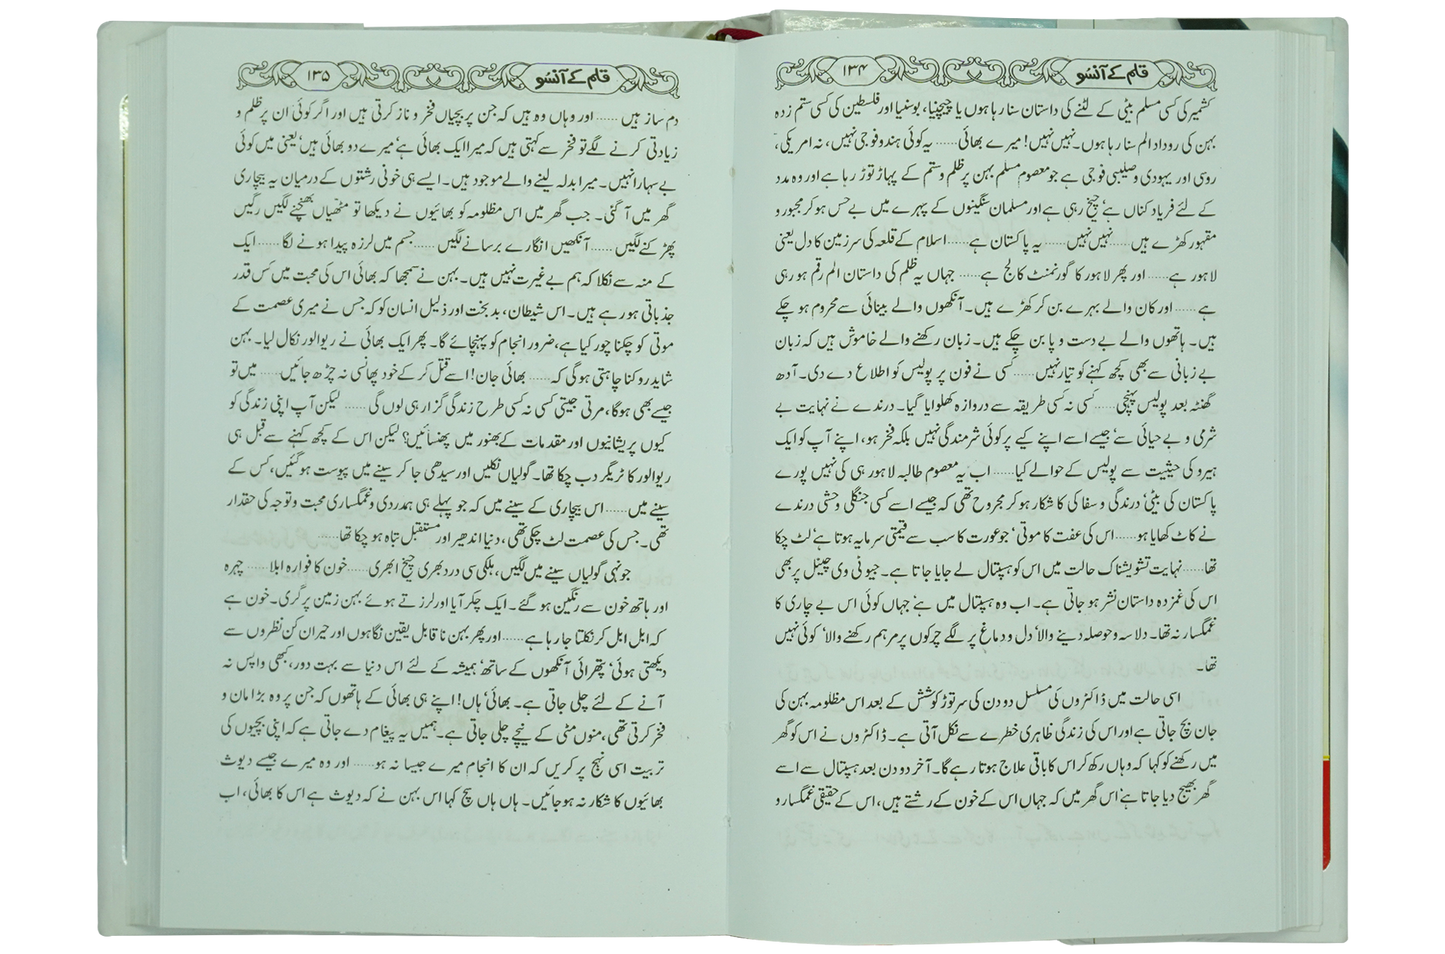 قلم کے آنسو ۱۳۴
کشمیر کی کسی مسلم بیٹی کے لٹنے کی داستان سنا رہا ہوں یا چیچنیا، بوسنیا اور فلسطین کی کسی ستم زدہ
بہن کی روداد الم سنا رہا ہوں۔ نہیں نہیں! میرے بھائی ...... یہ کوئی ہندو فوجی نہیں، نہ امریکی،
روسی اور یہودی و صلیبی فوجی ہے جو معصوم مسلم بہن پر ظلم و ستم کے پہاڑ توڑ رہا ہے اور وہ مدد
کے لئے فریاد کناں ہے، چیخ رہی ہے اور مسلمان سنگینوں کے پہرے میں بے حس ہو کر مجبور و
مقہور کھڑے ہیں ...... نہیں نہیں ...... یہ پاکستان ہے ...... اسلام کے قلعہ کی سرزمین کا دل یعنی
لاہور ہے ...... اور پھر لاہور کا گورنمنٹ کالج ہے ...... جہاں یہ ظلم کی داستان الم رقم ہو رہی
ہے ...... اور کان والے بہرے بن کر کھڑے ہیں۔ آنکھوں والے بینائی سے محروم ہو چکے
ہیں۔ ہاتھوں والے بے دست و پا بن چکے ہیں۔ زبان رکھنے والے خاموش ہیں کہ زبان
بے زبانی سے بھی کچھ کہنے کو تیار نہیں ...... کسی نے فون پر پولیس کو اطلاع دے دی۔ آدھ
گھنٹہ بعد پولیس پہنچی ...... کسی نہ کسی طریقہ سے دروازہ کھلوایا گیا۔ درندے نے نہایت بے
شرمی و بے حیائی سے، جیسے اسے اپنے کیے پر کوئی شرمندگی نہیں بلکہ فخر ہو، اپنے آپ کو ایک
ہیرو کی حیثیت سے پولیس کے حوالے کیا ...... اب یہ معصوم طالبہ لاہور ہی کی نہیں پورے
پاکستان کی بیٹی، درندگی و سفاکی کا شکار ہو کر مجروح تھی کہ جیسے اسے کسی جنگلی وحشی درندے
نے کاٹ کھایا ہو ...... اس کی عفت کا موتی، جو عورت کا سب سے قیمتی سرمایہ ہوتا ہے، لٹ چکا
تھا ...... نہایت تشویشناک حالت میں اس کو ہسپتال لے جایا جاتا ہے۔ جیو ٹی وی چینل پر بھی
اس کی غمزدہ داستان نشر ہو جاتی ہے۔ اب وہ ہسپتال میں ہے، جہاں کوئی اس بے چاری کا
غمگسار نہ تھا۔ دلاسہ و حوصلہ دینے والا، دل و دماغ پر لگے چرکوں پر مرہم رکھنے والا، کوئی نہیں
تھا۔
اسی حالت میں ڈاکٹروں کی مسلسل دو دن کی سر توڑ کوشش کے بعد اس مظلومہ بہن کی
جان بچ جاتی ہے اور اس کی زندگی ظاہری خطرے سے نکل آتی ہے۔ ڈاکٹروں نے اس کو گھر
میں رکھنے کو کہا کہ وہاں رکھ کر اس کا باقی علاج ہوتا رہے گا۔ آخر دو دن بعد ہسپتال سے اسے
گھر بھیج دیا جاتا ہے، اس گھر میں کہ جہاں اس کے خون کے رشتے ہیں، اس کے حقیقی غمگسار و
قلم کے آنسو ۱۳۵
دم ساز ہیں ...... اور وہاں وہ ہیں کہ جن پر بچیاں فخر و ناز کرتی ہیں اور اگر کوئی ان پر ظلم و
زیادتی کرنے لگے تو فخر سے کہتی ہیں کہ میرا ایک بھائی ہے، میرے دو بھائی ہیں، یعنی میں کوئی
بے سہارا نہیں۔ میرا بدلہ لینے والے موجود ہیں۔ ایسے ہی خونی رشتوں کے درمیان یہ بیچاری
گھر میں آ گئی۔ جب گھر میں اس مظلومہ کو بھائیوں نے دیکھا تو مٹھیاں بھنچنے لگیں رگیں
پھڑکنے لگیں ...... آنکھیں انگارے برسانے لگیں ...... جسم میں لرزہ پیدا ہونے لگا ...... ایک
کے منہ سے نکلا کہ ہم بے غیرت نہیں ہیں۔ بہن نے سمجھا کہ بھائی اس کی محبت میں کس قدر
جذباتی ہو رہے ہیں۔ اس شیطان، بدبخت اور ذلیل انسان کو کہ جس نے میری عصمت کے
موتی کو چکنا چور کیا ہے، ضرور انجام کو پہنچائے گا۔ پھر ایک بھائی نے ریوالور نکال لیا۔ بہن
شاید روکنا چاہتی ہوگی کہ ...... بھائی جان! اسے قتل کر کے خود پھانسی نہ چڑھ جائیں ...... میں تو
جیسے بھی ہوگا، مرتی جیتی کسی نہ کسی طرح زندگی گزار ہی لوں گی ...... لیکن آپ اپنی زندگی کو
کیوں پریشانیوں اور مقدمات کے بھنور میں پھنسائیں؟ لیکن اس کے کچھ کہنے سے قبل ہی
ریوالور کا ٹریگر دب چکا تھا۔ گولیاں نکلیں اور سیدھی جا کر سینے میں پیوست ہو گئیں، کس کے
سینے میں ...... اس بیچاری کے سینے میں کہ جو پہلے ہی ہمدردی و غمگساری محبت و توجہ کی حقدار
تھی۔ جس کی عصمت لٹ چکی تھی، دنیا اندھیر اور مستقبل تباہ ہو چکا تھا ......
جونہی گولیاں سینے میں لگیں، ہلکی سی درد بھری چیخ ابھری ...... خون کا فوارہ ابلا ...... چہرہ
اور ہاتھ خون سے رنگین ہو گئے۔ ایک چکر آیا اور لرزتے ہوئے بہن زمین پر گری۔ خون ہے
کہ ابل ابل کر نکلتا جا رہا ہے ...... اور پھر بہن ناقابل یقین نگاہوں اور حیران کن نظروں سے
دیکھتی ہوئی، پتھرائی آنکھوں کے ساتھ، ہمیشہ کے لئے اس دنیا سے بہت دور، کبھی واپس نہ
آنے کے لئے چلی جاتی ہے۔ بھائی، ہاں! اپنے ہی بھائی کے ہاتھوں کہ جن پر وہ بڑا مان و
فخر کرتی تھی، منوں مٹی کے نیچے چلی جاتی ہے۔ ہمیں یہ پیغام دے جاتی ہے کہ اپنی بچیوں کی
تربیت اسی نہج پر کریں کہ ان کا انجام میرے جیسا نہ ہو ...... اور وہ میرے جیسے دیوث
بھائیوں کا شکار نہ ہو جائیں۔ ہاں ہاں سچ کہا اس بہن نے کہ دیوث ہے اس کا بھائی، اب